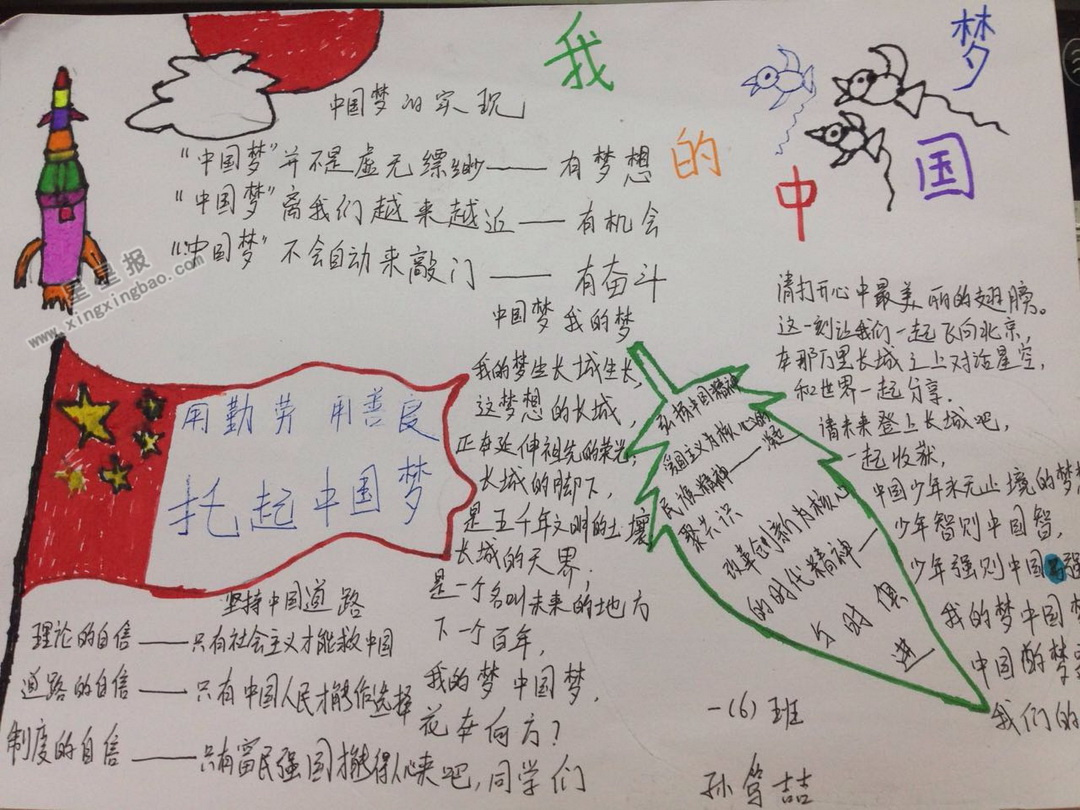 我的中国梦
中国梦的实现
“中国梦”并不是虚无缥缈——有梦想
“中国梦”离我们越来越近——有机会
“中国梦”不会自动来敲门——有奋斗
星星报
www.xingxingbao.com
用勤劳 用善良
托起中国梦
坚持中国道路
理论的自信——只有社会主义才能救中国
道路的自信——只有中国人民才能作选择
制度的自信——只有富民强国才能得人心
中国梦 我的梦
我的梦生长城生长,
这梦想的长城,
正在延伸祖先的荣光,
长城的脚下,
是五千年文明的土壤
长城的天界.
是一个名叫未来的地方
下一个百年,
我的梦 中国梦,
花在何方?
来吧,同学们
弘扬中国精神
爱国主义为核心的
民族精神——凝
聚共识
改革创新为核心
的时代精神—
与时俱
进
请打开心中最美丽的翅膀。
这一刻让我们一起飞向北京,
在那万里长城之上对话星空,
和世界一起分享.
请未来登上长城吧,
一起收获,
中国少年永无止境的梦
少年智则中国智,
少年强则中国强
我的梦中国梦
中国的梦
我们的
一(6)班
孙
喆